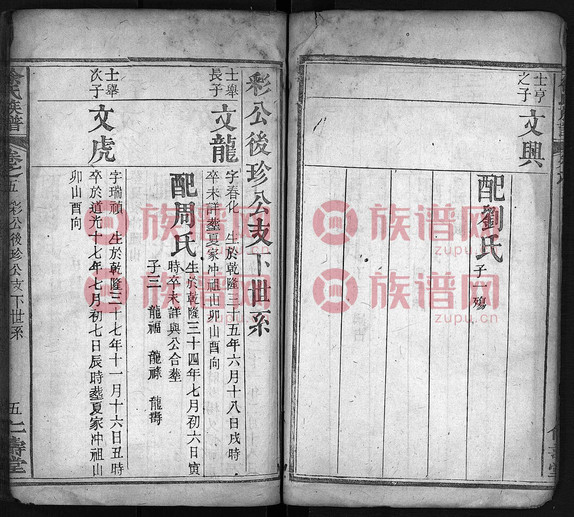 士亨
之子
文興
配劉氏
子一殤
彩公後珍公支下世系
士舉
長子
文龍
字春化 生於乾隆三十五年六月十八日戌時
卒未詳葬夏家冲祖山卯山酉向
配周氏
生於乾隆三十四年七月初六日寅
時卒未詳與公合葬
子三 龍福 龍祿 龍壽
士舉
次子
文虎
字瑞禎 生於乾隆三十七年十一月十六日丑時
卒於道光十七年七月初七日辰時葬夏家冲祖山
卯山酉向
氏族譜
卷之五 彩公後珍公支下世系
五
仁壽堂
族谱网
zupu.cn
族谱网
zupu.cn
族谱网
zupu.cn
族谱网
zupu.cn